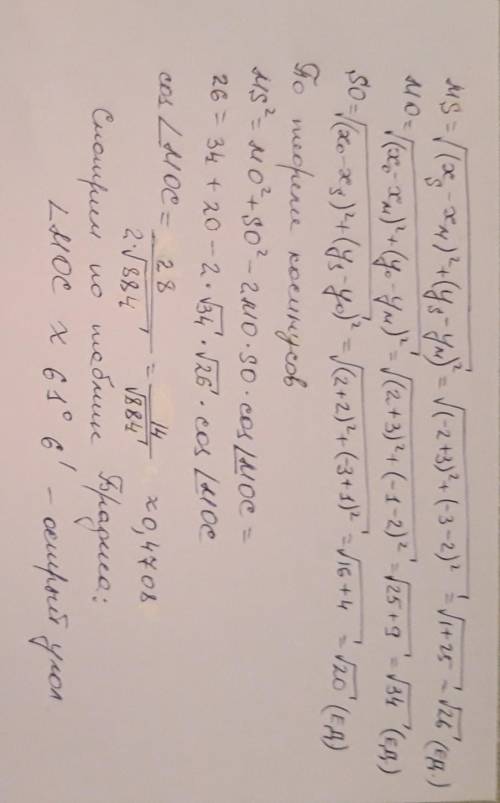 MS = √((x_S − x_M)² + (y_S − y_M)²) = √((-2+3)² + (-3-2)²) = √(1+25) = √26 (ед.)
MO = √((x_0 − x_M)² + (y_0 − y_M)²) = √((2+3)² + (-1-2)²) = √(25+9) = √34 (ед.)
SO = √((x_0 − x_S)² + (y_S − y_0)²) = √((2+2)² + (-3+1)²) = √(16+4) = √20 (ед)
По теореме косинусов
MS² = MO² + SO² − 2MO · SO · cos∠MOC =
26 = 34 + 20 − 2 · √34 · √26 · cos∠MOC
cos∠MOC = 28 / (2·√884) = 14 / √884 ≈ 0,4708
Смотрим по таблице Брадиса:
∠MOC ≈ 61° 6' – острый угол